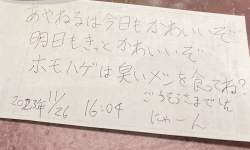 あやねるは今日もかわいいぞ
明日もきっとかわいいぞ
ホモハゲは臭いメシを食ってね?
ごちそうさまでした
2023年11/26 16:04 にゃーん